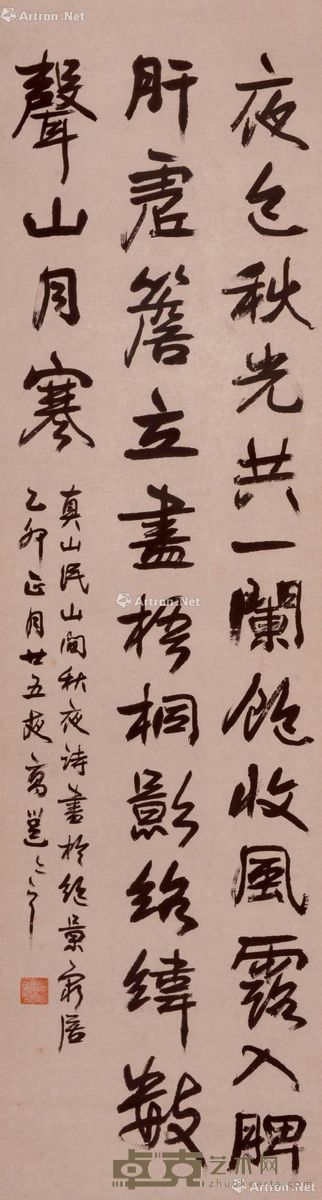 夜色秋光共一闌飽收風露入脾
肝虛簷立盡梧桐影絡緯數
聲山月寒
真山民山間秋夜詩書於絕景窮居
乙卯正月廿五夜高邕
Artron.Net
Artron.Net
Artron.Net
Artron.Net
Artron.Net
卓克艺术网